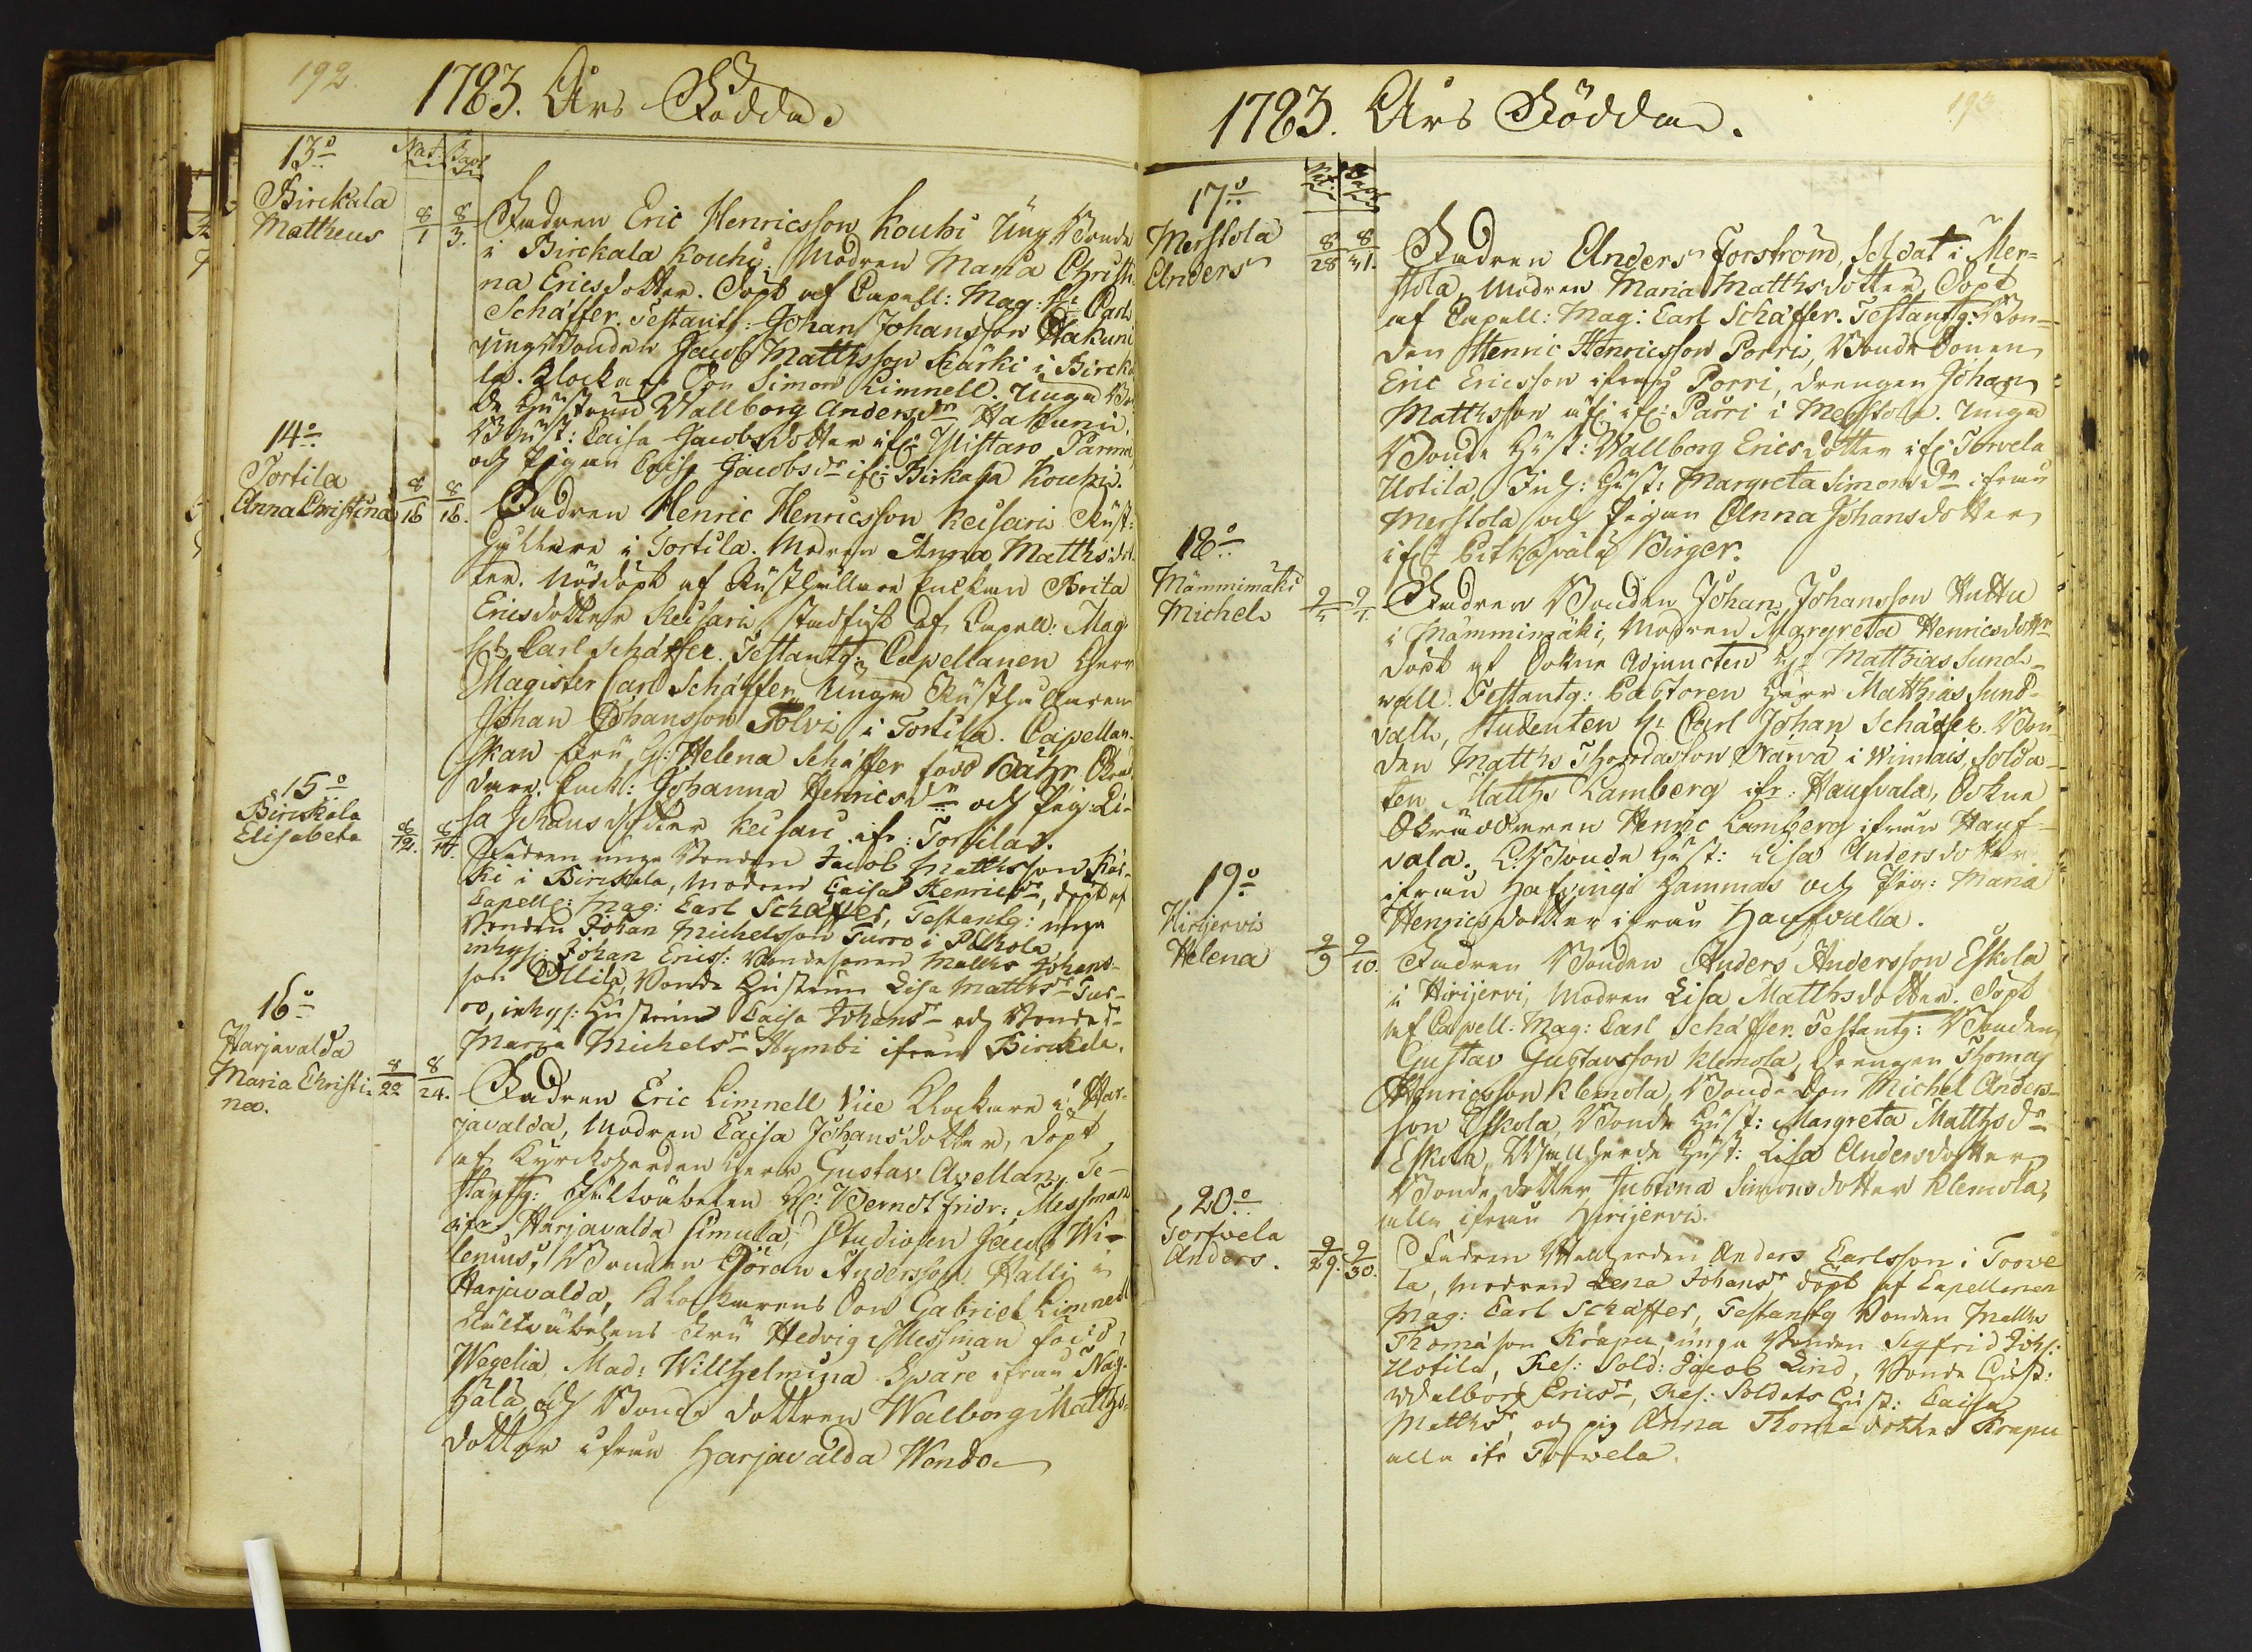 192.
1783. Års Födde.
13:o
Nat. Bapt.
Birckala
Mattheus
8/1 8/3.
Fadren Eric Henricsson Kouhi Ung Bonde
i Birckala Kouhi, Modren Maria Christi
na Ericsdotter. Döpt af Capell: Mag: H:r Carl
Schäffer. Testantg: Johan Johansson Hakuni
Unga Bonden Jacob Matthsson Kärki i Bircka
la. Klockare Son Simon Limnell. Unga Bon
de Hustrun Wallborg Andersd:r Hakuni.
B Hust: Caisa Jacobsdotter if: Ylistaro Parma
och Pigan Caisa Jacobsd:r if: Birkala Kouhi.
14:o
Tortila
Anna Christina
8/16 8/16.
Fadren Henric Henricsson Keisari Rust:
hållare i Tortila. Modren Anna Matthsdot
ter. Nöddöpt af Rusthållare Enckan Brita
Ericsdotter Keisari, stadfäst af Capell: Mag:
H:r Carl Schäffer. Testantg: Capellanen Herr
Magister Carl Schäffer, Unga Rusthållaren
Johan Johansson Tolvi i Tortila. Capellan-
skan Fru G: Helena Schäffer född Bähr
dare: Enck: Johanna Henricsd:r och Pig: Li-
sa Johansdotter Keisari ifr: Tortila.
15:o
Birckala
Elisabeta
8/12. 8/17.
Fadren unga Bonden Jacob Matthsson Kär-
ki i Birckala, Modren Caisa Henricsd:r, döpt af
Capell: Mag: Carl Schäffer, Testantg: unga
Bonden Johan Michelsson Turro i Pälkola
inhys: Johan Erics: Bondesonen Matths Johans-
son Ollila, Bonde Hustrun Lisa Matthsd:r Tur-
ro, inhys: Hustrun Caisa Johansd:r och Bonded:r
Marga Michelsd:r Hymbi ifrån Birckala.
16:o
Harjavalda
Maria Christi-
na.
8/22 8/24.
Fadren Eric Limnell Vice Klockare i Har-
javalda, Modren Caisa Johansdotter, döpt
af Kyrckoherden Herr Gustav Avellan, Te-
stantg: Fältväbelen H:r Berndt Fridr: Messman
ifr: Harjavalda Simula, Studiosen Jacob Wi-
lenius, Bonden Göran Andersson Halli i
Harjavalda, Klockarens Son Gabriel Limnell
Fältväbelens Fru Hedvig Messman född
Wegelia, Mad: Willhelmina Spare ifrån Nag-
hälä, och Bonde dottren Walborg Matths-
dotter ifrån Harjavalda Wendo
193
1783. Års Födde.
17:o
Merstola
Anders
8/28 8/31.
Fadren Anders Forström, Soldat i Mer-
stola, Modren Maria Matthsdotter, Döpt
af Capell: Mag: Carl Schäffer. Testantg: Bon-
den Henric Henricsson Porri, Bonde Sonen
Eric Ericsson ifrån Porri, drengen Johan
Matthsson ifrån Parri i Merstola. Unga
Bonde Hust: Wallborg Ericsdotter if: Torvela
Uotila, Inh: Hust: Margreta Simonsd:r ifrån
Merstola och Pigan Anna Johansdotter
if: Pitkäpälä Birger.
18:o
Mämmimäki
Michel
9/4 9/7.
Fadren Bonden Johan Johansson Huttu
i Mämmimäki, Modren Margreta Henricsdott:r
döpt af Sokne Adjuncten H:r Matthias Sund-
vall. Testantg: Pastoren Herr Matthias Sund-
vall, Studenten H:r Carl Johan Schäffer. Bon-
den Matths Thomasson Närvä i Winnais, Solda-
ten Matths Lamberg ifr: Haufvala, Sokne
Skräddaren Henric Lamberg ifrån Hauf-
vala. L: Bonde Hust: Lisa Andersdotter
ifrån Hafvingi Hammas och Pig: Maria
Henricsdotter ifrån Haufvalla.
19:o
Hirijervi
Helena
9/9 9/10.
Fadren Bonden Anders Andersson Eskola
i Hirijervi, Modren Lisa Matthsdotter. Döpt
af Capell: Mag: Carl Schäffer. Testantg: Bonden
Gustav Gustavsson Klemola, Drengen Thomas
Henricsson Klemola, Bonde Son Michel Anders-
son Eskola, Bonde Hust: Margreta Matthsd:r
Eskola, Wallherde Hust: Lisa Andersdotter
Bonde dotter Justina Simonsdotter Klemola
alla ifrån Hirijervi.
20:o
Torfvela
Anders.
9/29. 9/30.
Fadren Wallherden Anders Carlsson i Torve
la, Modren Lena Johansd:r döpt af Capellanen
Mag: Carl Schäffer, Testantg Bonden Matths
Thomason Krapu, unga Bonden Sigfrid Johs:
Uotila, Res: Sold: Jacob Lind, Bonde Hust:
Walborg Ericsd:r, Res: Soldats Hust: Caisa
Matthsd:r och pig Anna Thomadotter Krapu
alla ifr Torwela.